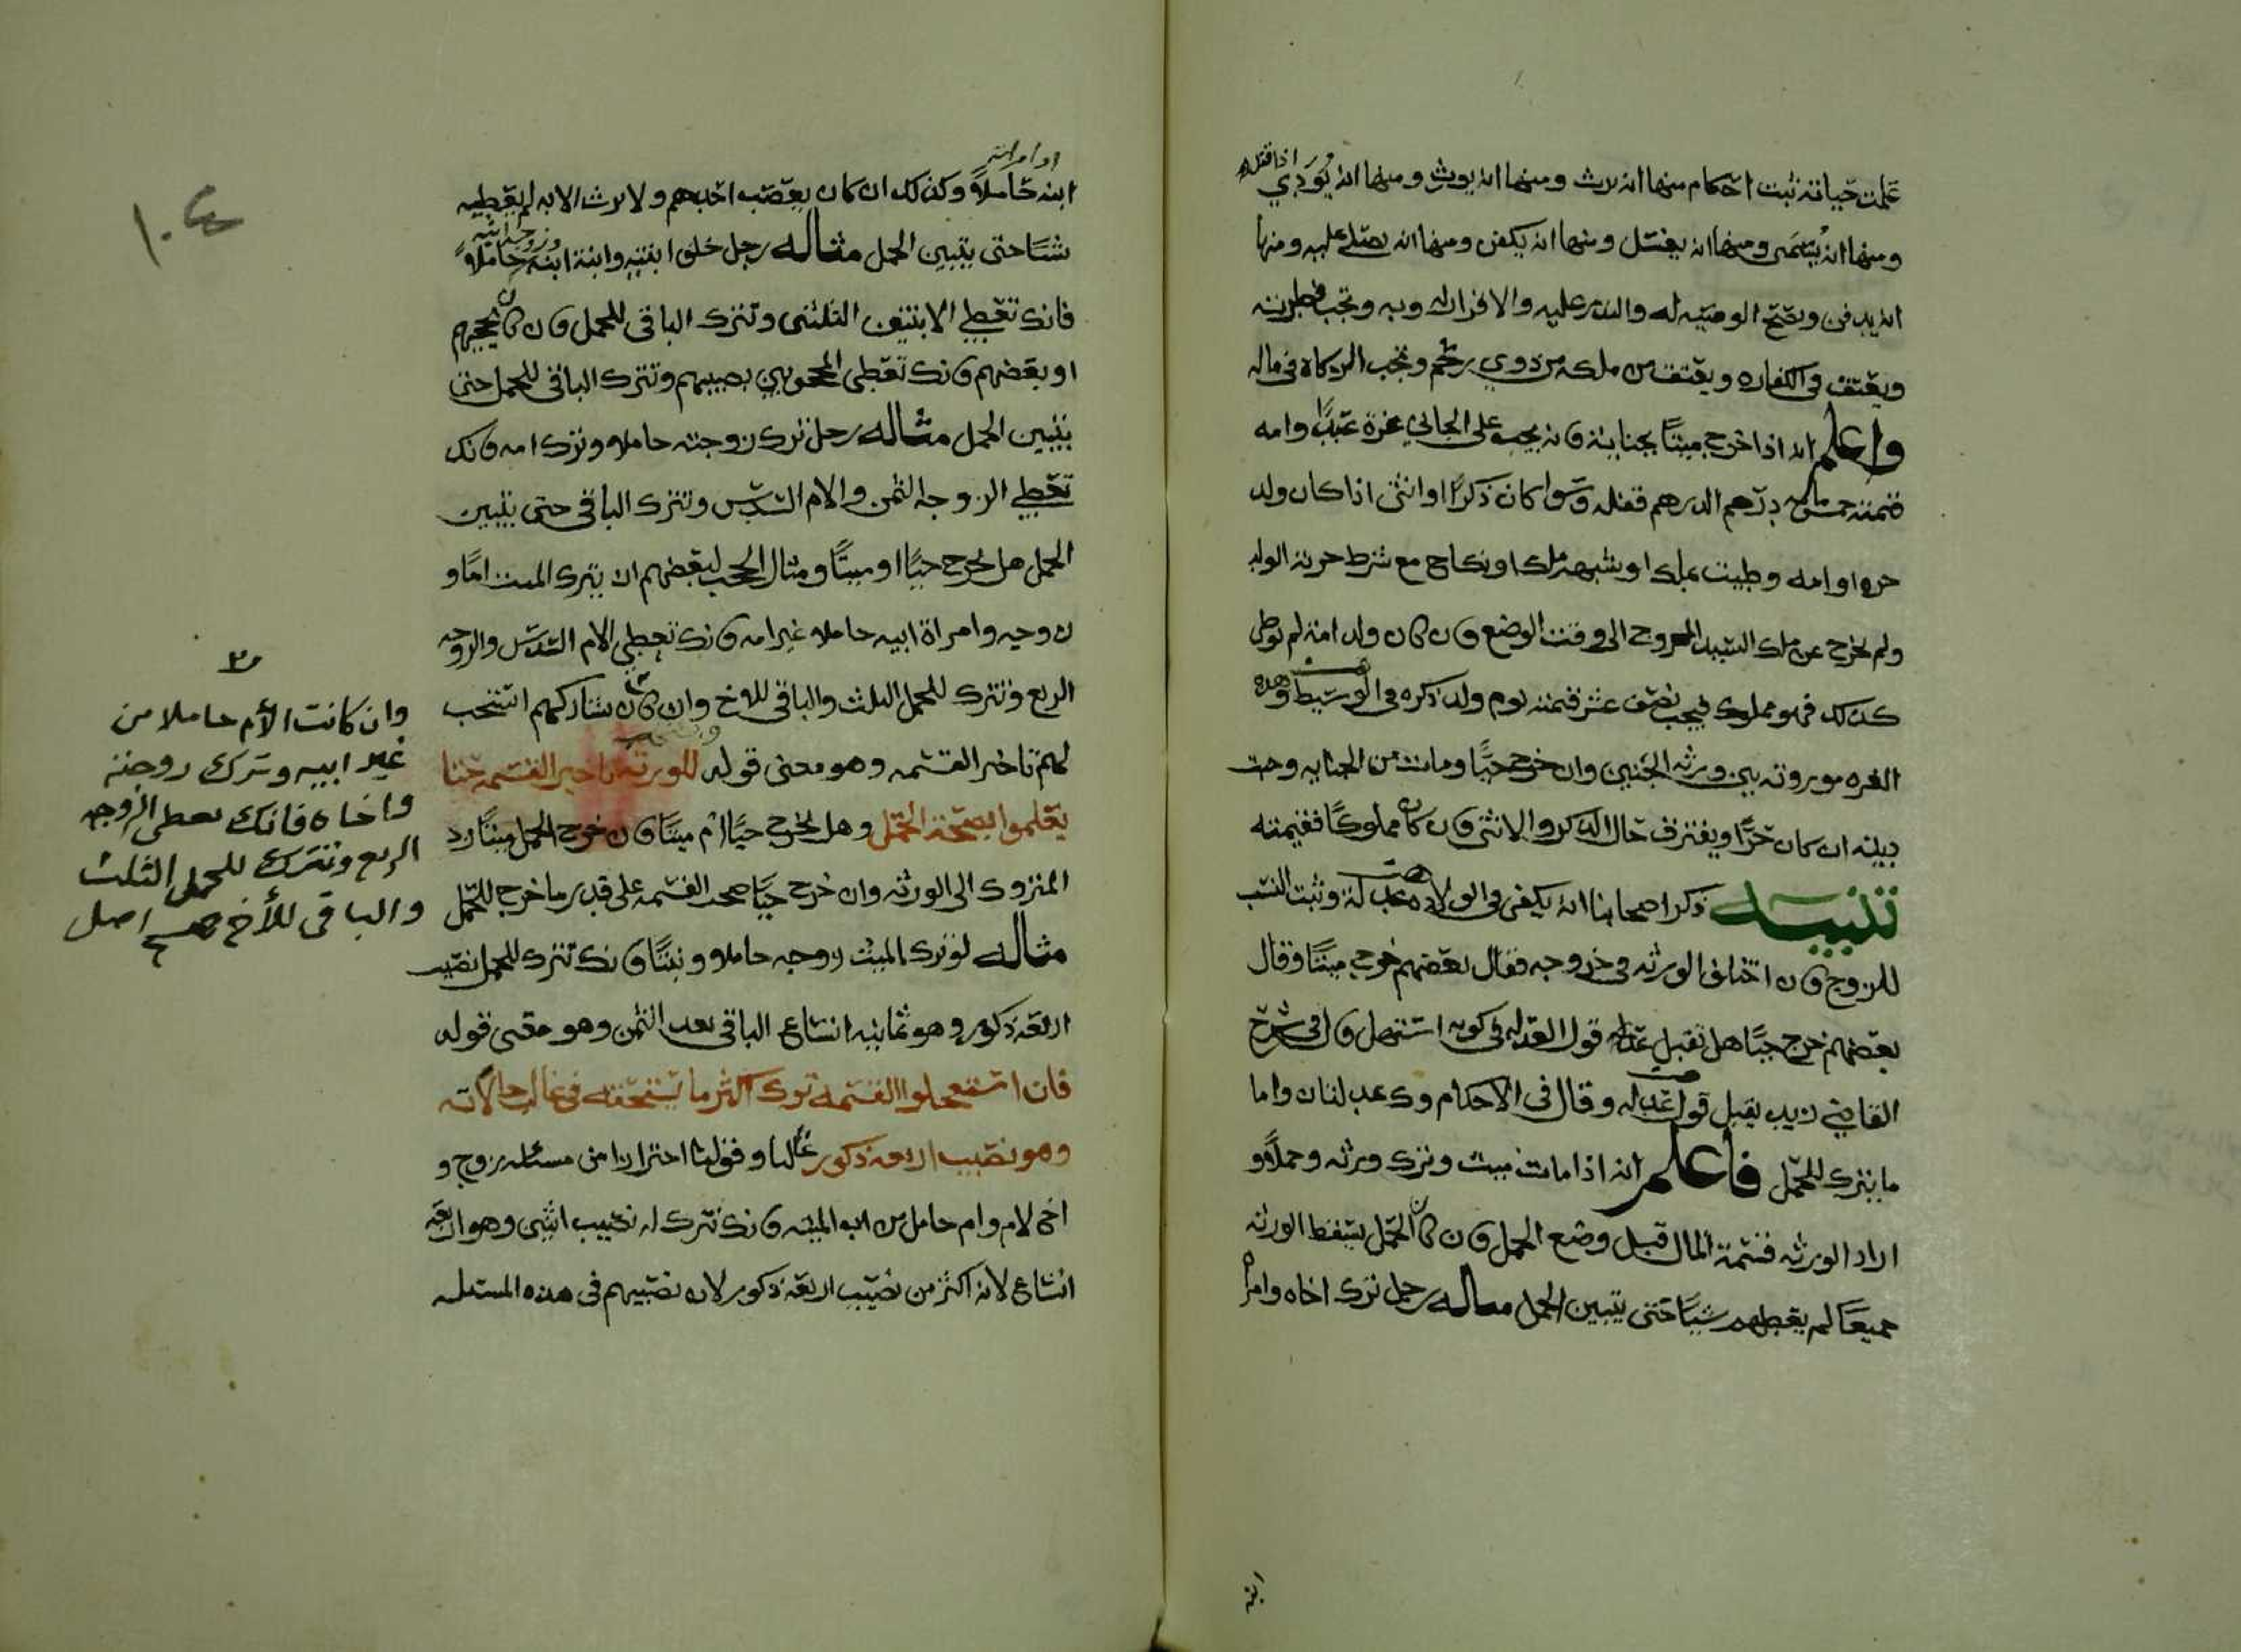 علمت حياته ثبت احكام منها انه يرث ومنها انه يورث ومنها انه يُوَدِي اذا قتل
ومنها ان يُسَمى ومنها انه يغسل ومنها انه يكفن ومنها انه يصلى عليه ومنها
انه يدفن وتصح الوصيه له والنذر عليه والاقرار له وبه وتجب فطرته
ويعتق في الكفاره ويعتق من ملكه من ذوي رحم وتجب الزكاه في ماله
واعلم انه اذا خرج ميتًا بجنايه فانه يجب على الجاني غرة عبدًا وامه
قيمته خمس مائه درهم الدرهم قفله وسوا كان ذكرًا او انثى اذا كان ولد
حره او امه وطيت بملك او شبهة ملك او نكاح مع شرط حرية الولد
ولم يخرج عن ملك السيد المزوج الى وقت الوضع فان كان ولد امة لم توطى
كذلك فهو مملوك فيجب نصف عشر قيمته يوم ولد ذكره في الوسيط وهذه
الغره موروثه بين ورثة الجنين وان خرج حيًا ومات من الجنايه وجبت
ديته ان كان حرًا ويفترق حال الذكر والانثى فان كان مملوكًا فقيمته
تنبيه ذكر اصحابنا انه يكفي في الولاده عدلة وثبت النسب
للزوج فان اختلف الورثه في خروجه فقال بعضهم خرج ميتًا وقال
بعضهم خرج حيًا هل تقبل عدله قول العدله في كونه استهل قال في شرح
القاضي زيد يقبل قول عدله وقال في الاحكام وك عدلتان واما
ما يترك للحمل فاعلم انه اذا مات ميت وترك ورثه وحملًا و
اراد الورثه قسمة المال قبل وضع الحمل فان كان الحمل يسقط الورثه
جميعًا لم يعطهم شيًا حتى يتبين الحمل مثاله رجل ترك اخاه وامراة
ابنه حاملًا وكذلك ان كان يعصب احدهم ولا يرث الا به لم يعطيه
شيًا حتى يتبين الحمل مثاله رجل خلف ابنتيه وابنة ابنه وزوجة ابنه حاملًا
فانك تعطي الابنتين الثلثين وتترك الباقي للحمل فان كان يحجبهم
او بعضهم فانك تعطي المحجوبين نصيبهم وتترك الباقي للحمل حتى
يتبين الحمل مثاله رجل ترك زوجته حامله وترك امه فانك
تعطي الزوجه الثمن والام السدس وتترك الباقي حتى يتبين
الحمل هل يخرج حيًا او ميتًا ومثال الحجب لبعضهم ان يترك الميت امًا و
زوجه وامراة ابيه حامله غير امه فانك تعطي الام السدس والزوجه
الربع وتترك للحمل الثلث والباقي للاخ وان كان يشاركهم استحب
لهم تاخير القسمه وهو معنى قوله للورثه تاخير القسمه حتى
يعلموا بصحة الحمل وهل يخرج حيًا ام ميتًا فان خرج الحمل ميتًا رد
المتروك الى الورثه وان خرج حيًا صحت القسمه على قدر ما خرج للحمل
مثاله لو ترك الميت زوجه حامله وبنتًا فانك تترك للحمل نصيب
اربعة ذكور وهو ثمانيه اتساع الباقي بعد الثمن وهو معنى قوله
فان استعجلوا القسمه ترك اكثر ما يستحقه في غالب حالاته
وهو نصيب اربعه ذكور غالبا وقولنا احترازا من مسئله زوج و
اخ لام وام حامل من اب الميته فانك تترك له نصيب انثى وهو اربعة
اتساع لانه اكثر من نصيب اربعة ذكور لان نصيبهم في هذه المسئله
١٠٤
وان كانت الأم حاملا من
غير ابيه وترك زوجته
واخاه فانك تعطي الزوجه
الربع وتترك للحمل الثلث
والباقي للأخ صح اصل